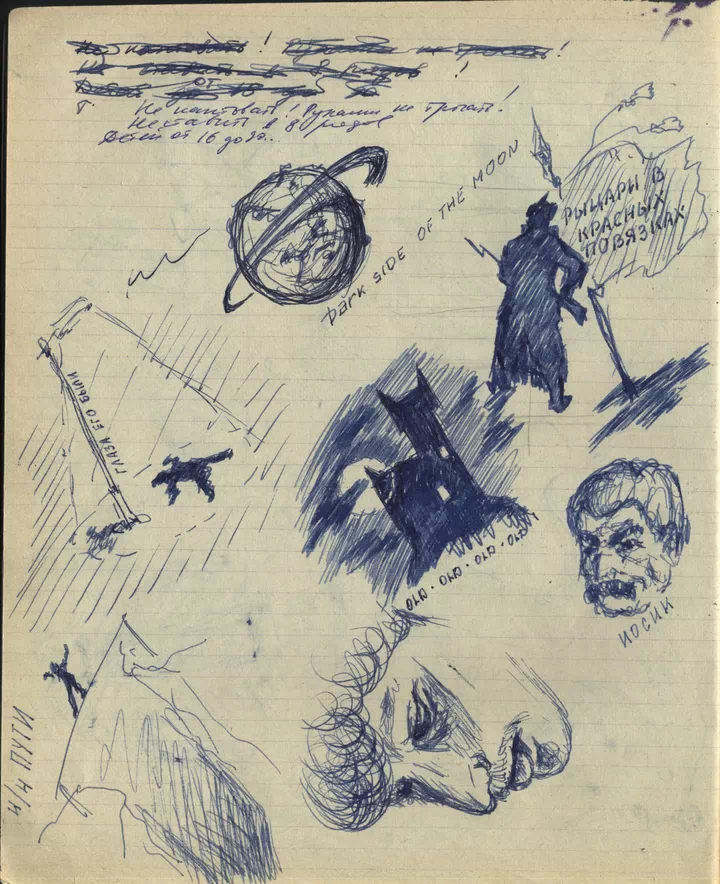 Не кантовать! Руками не трогать!
Не ставить в 8 рядов
Детей от 16 до
DARK SIDE OF THE MOON
РЫЦАРЫ В
КРАСНЫХ
ПОВЯЗКАХ
ГЛАЗА ЕГО БЫЛИ
OLD · OLD · OLD · OLD
ИОСИК
ПУТИ